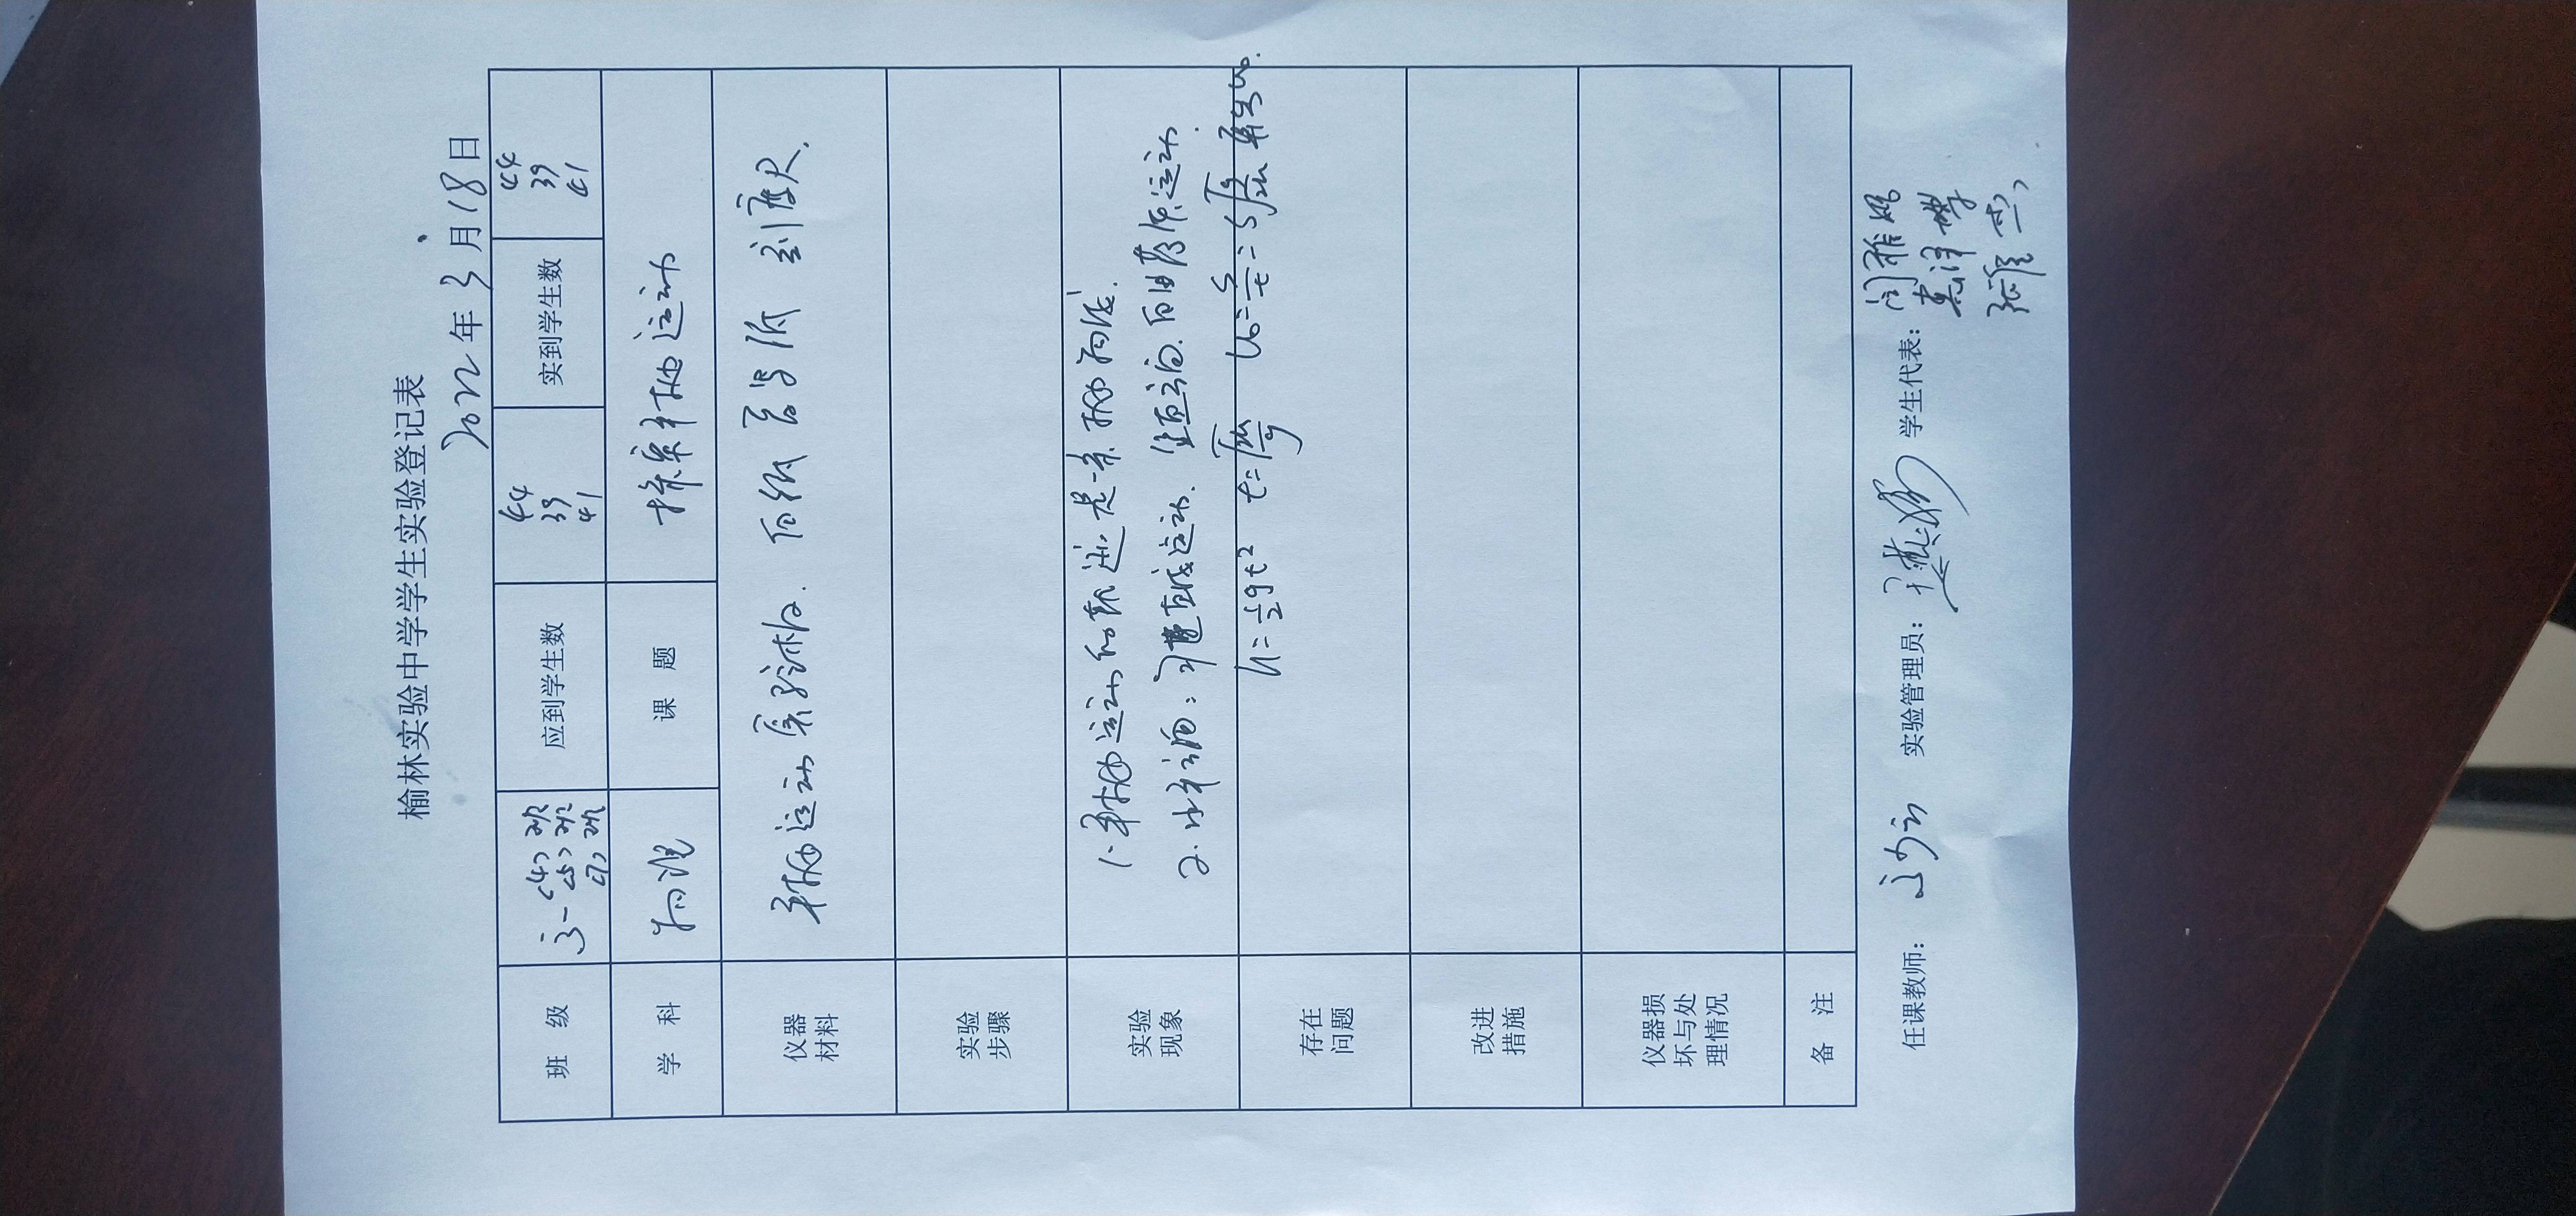 榆林实验中学学生实验登记表
2022年3月18日
班 级
应到学生数
44
39
41
实到学生数
44
39
41
学 科
物理
课 题
探究平抛运动
仪器
材料
平抛运动实验器. 白纸 复写纸 刻度尺.
实验
步骤
实验
现象
1. 平抛运动的轨迹是一条抛物线.
2. 水平方向: 匀速直线运动. 竖直方向. 自由落体运动.
h=½gt² t=√2h/g v₀=s/t=s√g/2h 算出v₀.
存在
问题
改进
措施
仪器损
坏与处
理情况
备 注
任课教师: 实验管理员: 学生代表: